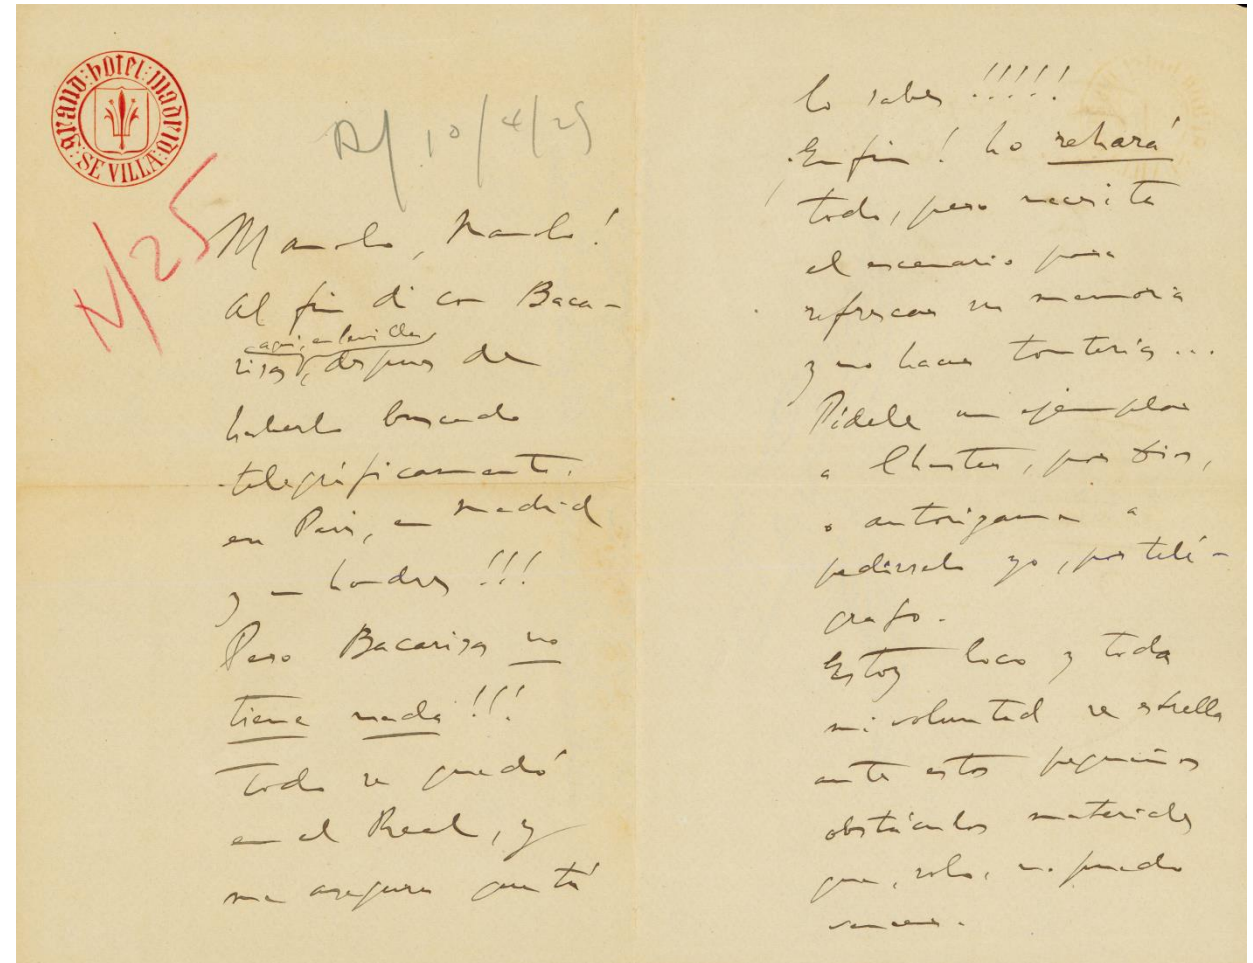 GRAND HOTEL MADRID
SEVILLA
R/. 10/4/25
IV/25
Manolo, Manolo!
Al fin di con Baca-
aquí, en Sevilla,
risas, despues de
haberlo buscado
telegráficamente.
en Paris, en Madrid
y en Londres!!!
Pero Bacarisas no
tiene nada!!!
Todo se quedó
en el Real, y
me asegura que tú
lo sabes!!!!!
En fin! Lo rehará
todo, pero necesita
el escenario para
refrescar su memoria
y no hacer tonterías...
Pídele un ejemplar
a Chester, por Dios,
o autorízame a
pedírselo yo, por telé-
grafo.
Estoy loco y toda
mi voluntad se estrella
ante estos pequeños
obstáculos materiales
que, solo, no puedo
vencer.